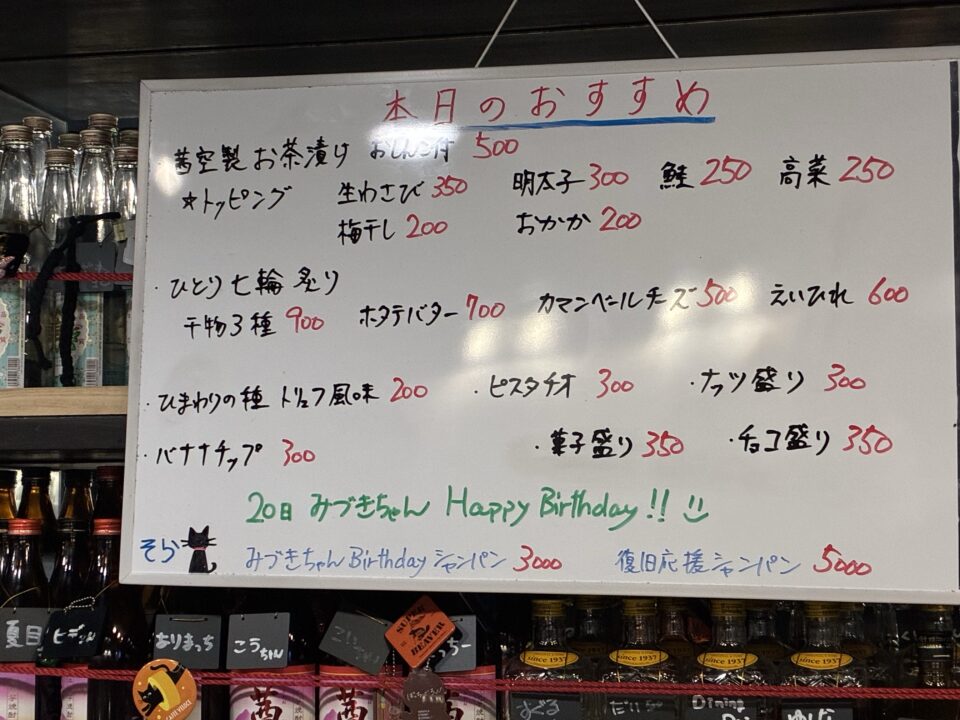 本日のおすすめ
・茜空製 お茶漬け おしんこ付 500
☆トッピング 生わさび 350 明太子 300 鮭 250 高菜 250
梅干し 200 おかか 200
・ひとり七輪 炙り
干物3種 900 ホタテバター 700 カマンベールチーズ 500 えいひれ 600
・ひまわりの種 トリュフ風味 200 ・ピスタチオ 300 ・ナッツ盛り 300
・バナナチップ 300 ・菓子盛り 350 ・チョコ盛り 350
20日 みづきちゃん Happy Birthday!!
そら みづきちゃん Birthday シャンパン 3000 復旧応援シャンパン 5000
夏目
ありまっち
こうちゃん
SUPER
BEAVER
since 1937
since 1937
since 1937
since 1937
茜
茜
すぐる
だいち
Dining